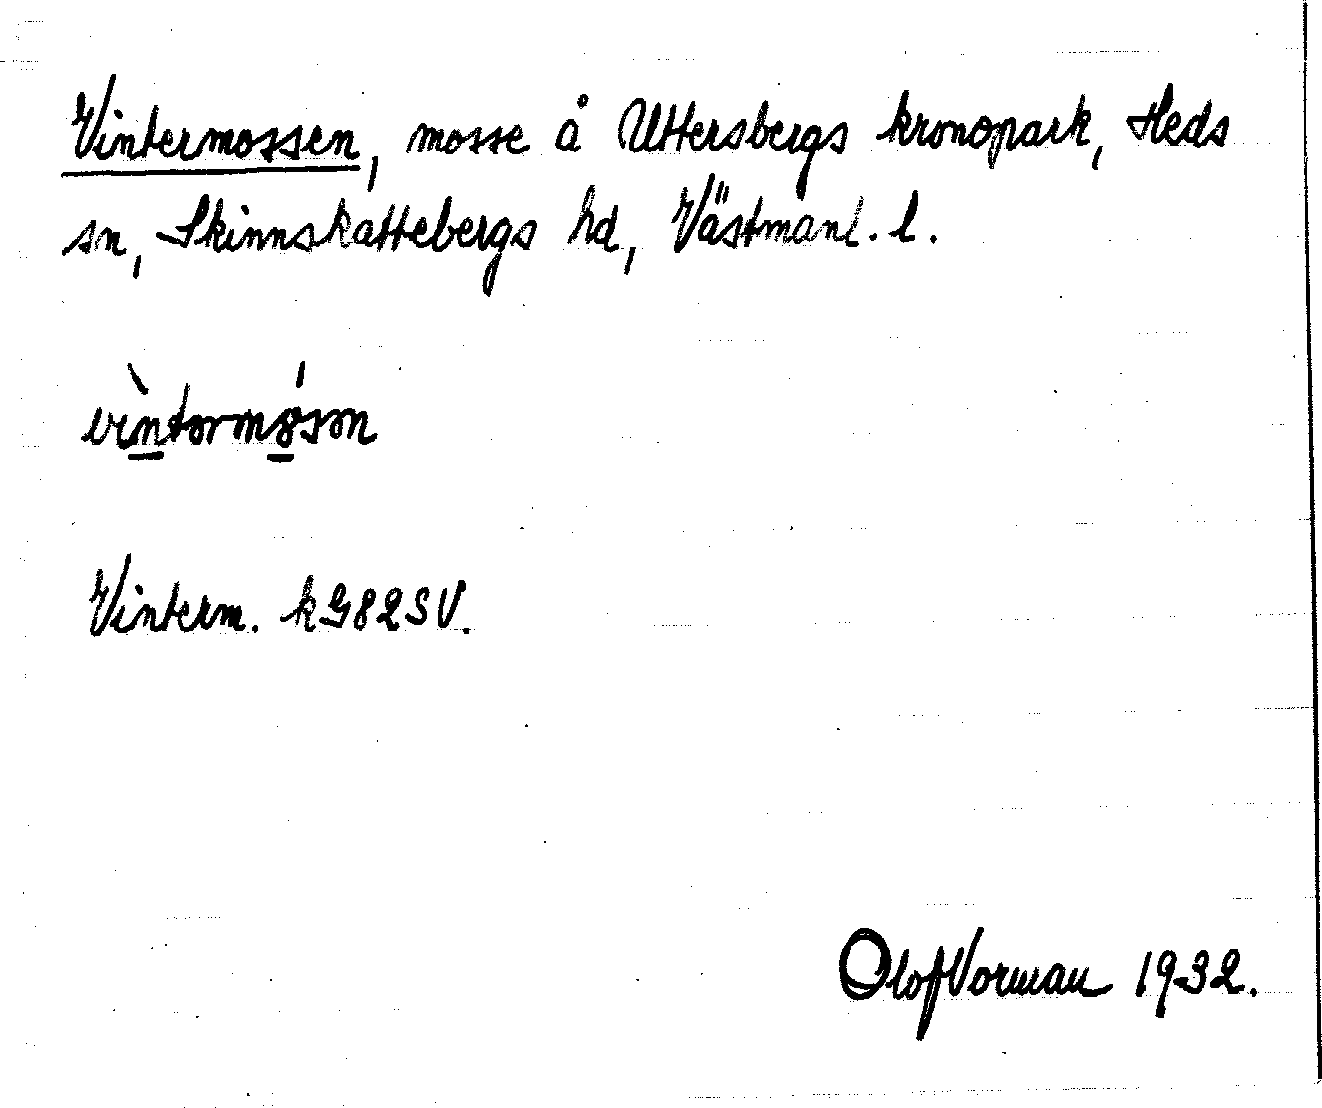 Vintermossen, mosse å Uttersbergs kronopark, Heds
sn, Skinnskattebergs hd, Västmanl. l.
vìntərmósən
Vinterm. kG82SV.
Olof Vorman 1932.